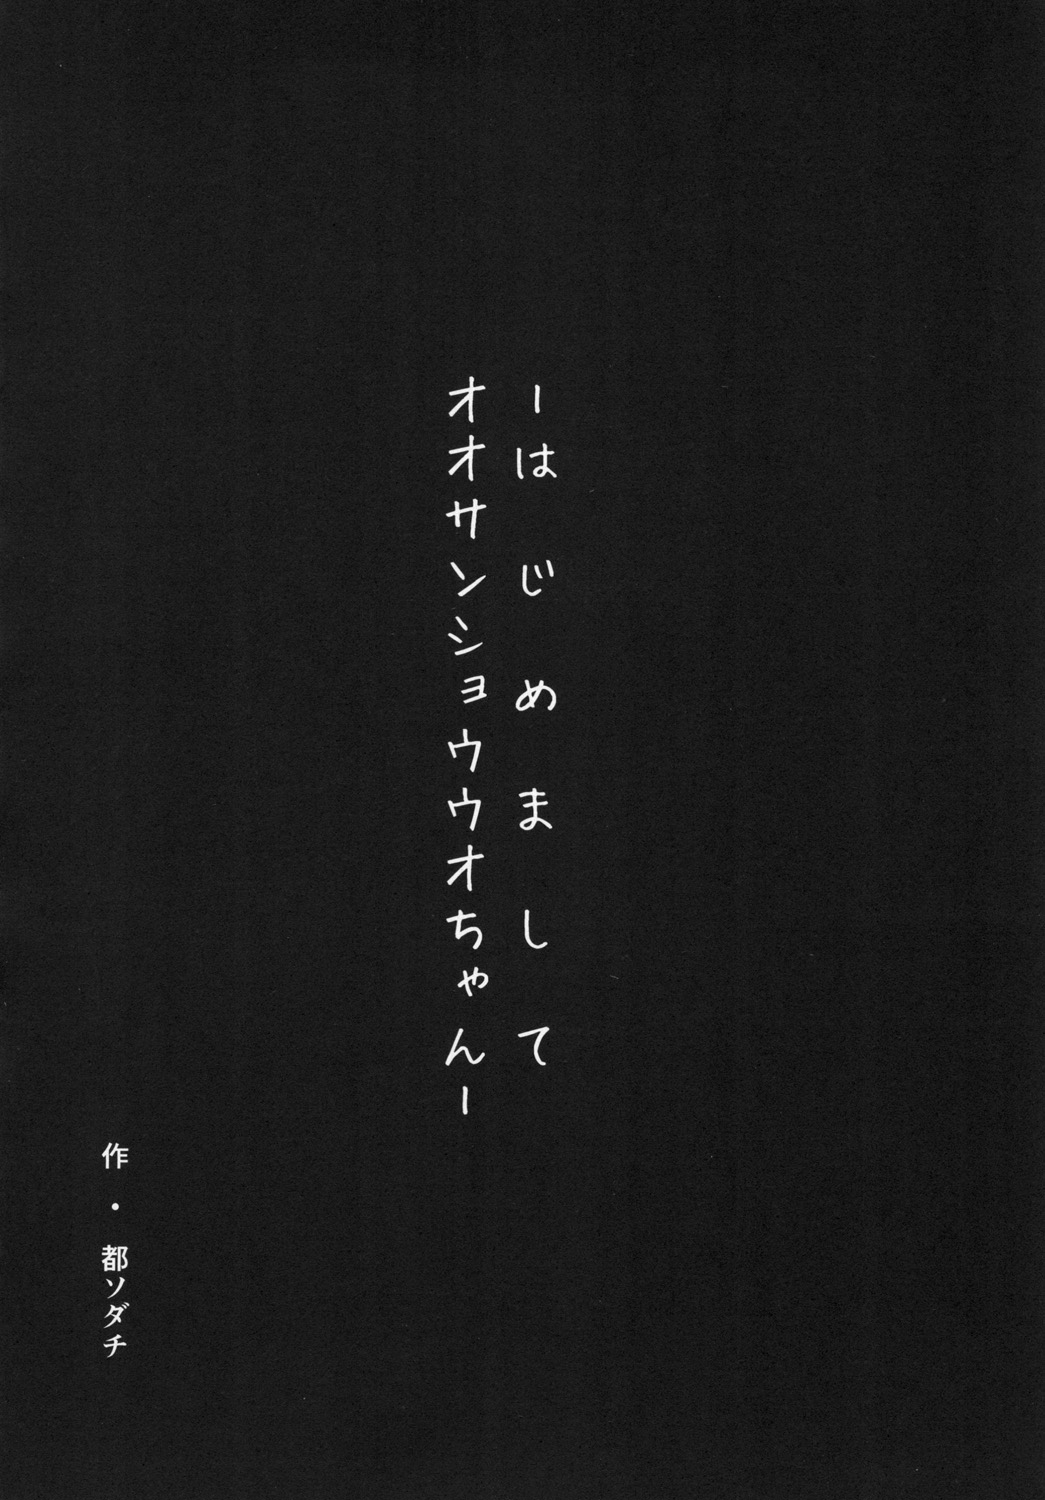 ーはじめまして
オオサンショウウオちゃんー
作・都ソダチ